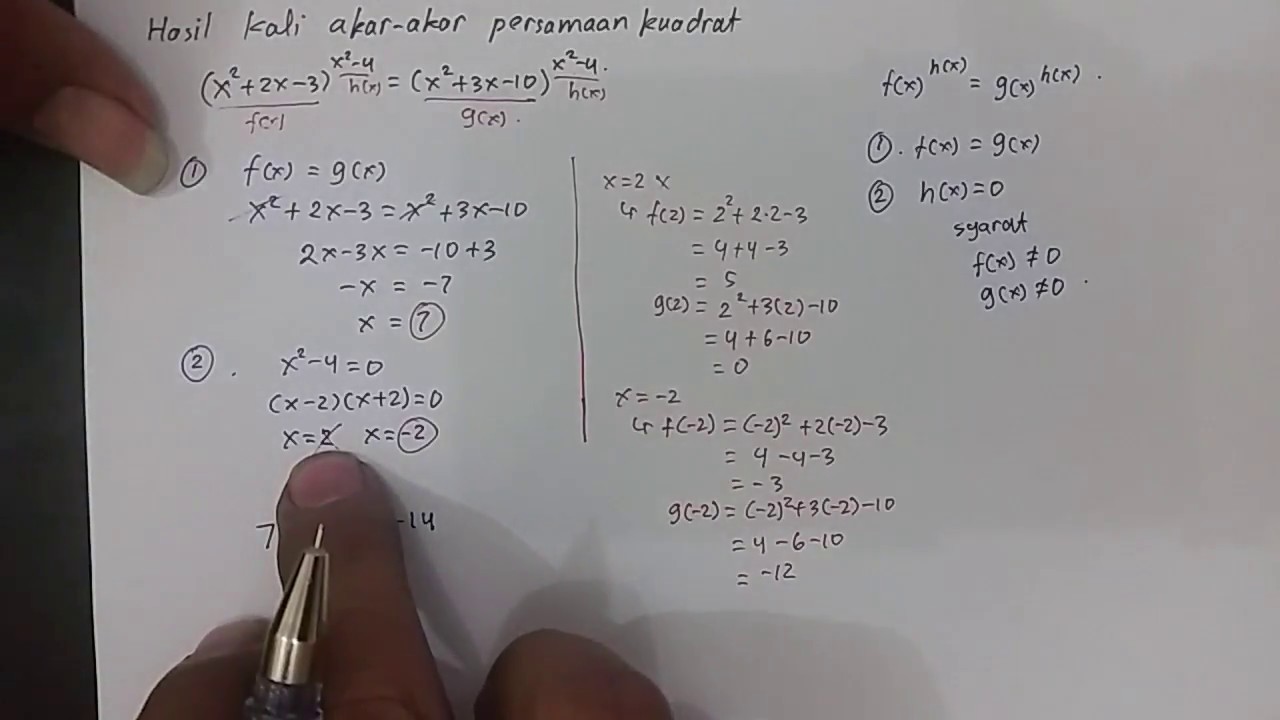 Hasil kali akar-akar persamaan kuadrat
(x²+2x-3)^(x²-4) = (x²+3x-10)^(x²-4).
f(x) h(x) g(x). h(x)
① f(x) = g(x)
x²+2x-3 = x²+3x-10
2x-3x = -10+3
-x = -7
x = 7
② . x²-4=0
(x-2)(x+2)=0
x=2 x=-2
7 -14
x=2 x
↳ f(2) = 2²+2·2-3
= 4+4-3
= 5
g(2) = 2²+3(2)-10
= 4+6-10
= 0
x=-2
↳ f(-2) = (-2)²+2(-2)-3
= 4-4-3
= -3
g(-2) = (-2)²+3(-2)-10
= 4-6-10
= -12
f(x)^h(x) = g(x)^h(x) .
①. f(x) = g(x)
② h(x)=0
syarat
f(x) ≠0
g(x) ≠0 .